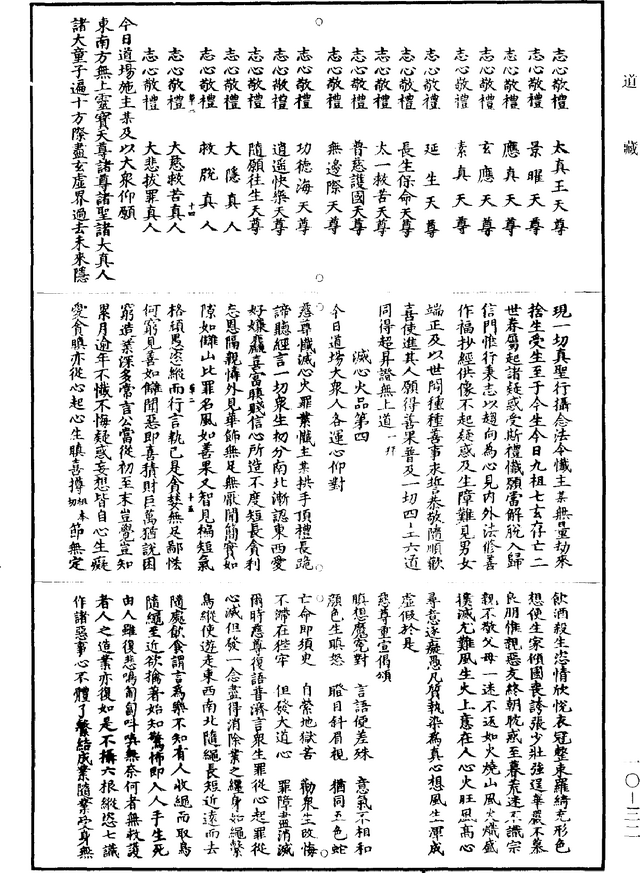 道藏
志心敬禮 太真王天尊
志心敬禮 景曜天尊
志心敬禮 應真天尊
志心敬禮 玄應天尊
志心敬禮 素真天尊
志心敬禮 延生天尊
志心敬禮 長生保命天尊
志心敬禮 太一救苦天尊
志心敬禮 普慈護國天尊
志心敬禮 無邊際天尊
志心敬禮 功德海天尊
志心敬禮 逍遥快樂天尊
志心敬禮 隨願往生天尊
志心敬禮 大隱真人
志心敬禮 救脫真人
志心敬禮 大慈救苦真人
志心敬禮 大悲拔罪真人
今日道場施主某及以大衆仰願
東南方無上靈寶天尊諸尊諸聖諸大真人
諸大童子遍十方際盡玄虛界過去未來隱
現一切真聖行攝念法令懺主某無量劫來
捨生受生至于今生今日九祖七玄存亡二
世眷屬起諸疑惑受斯禮懺願當解脫入歸
信門惟行秉志以趨向為心見内外法修善
作福抄經供像不起疑惑及生障難見男女
端正及以世間種種善事求哲恭敬隨順歡
喜使進其人願得善果普及一切四生六道
同得超昇證無上道
滅心火品第四
今日道場大衆人各運心仰對
慈尊懺滅心火罪業懺主某拱手頂禮長跪
諦聽經言一切衆生初分南北漸認東西愛
好嫌麤喜富瞋賤信心所造不度短長貪利
忘恩隔親憐外見華飾無足無厭聞簡實如
隙如讎山比罪名風如善果又智見褊短氣
格頑愚恣縱而行言執己是貪婪無足鄙悋
何窮見善如讎聞惡即喜猜財巨萬猶説困
窮造業深多常言公當從初至末豈覺豈知
累月逾年不懺不悔疑惑妄想皆自心生癡
愛貪瞋亦從心起心生瞋喜撙節無定
飲酒殺生恣情欣悅衣冠整束羅綺充形色
想使生家傾國喪誇張少壯強逞華嚴不慕
良朋惟親惡友終朝脫或至暮荒迷不識宗
親不敬父母一迷不返如火燒山風火熾盛
撲滅尤難風生火上意在人心火旺風高心
尋意逐癡愚凡質執染為真心想風生渾成
虛假於是
慈尊重宣偈頌
瞋想魔冤對 言語便差殊 意氣不相和
顏色生瞋怒 瞪目斜眉視 猶同五色蛇
亡命即須史 自縈地獄苦 勸衆生改悔
不滯在狴牢 但發大道心 罪障盡消滅
爾時慈尊復語普濟言衆生罪從心起罪從
心滅但發一念盡得消除業之纏身如繩繫
鳥縱使遊走東西南北隨繩長短近遠而去
隨處飲食謂言為樂不知有人收繩而取鳥
隨繩至近欲擒著始知驚怖即入人手生死
由人雖復悲鳴匍匐呌嘆無奈何者無救護
者人之造業亦復如是不攝六根縱恣七識
作諸惡事心不體了繫結成業隨業受身無
一〇－三二